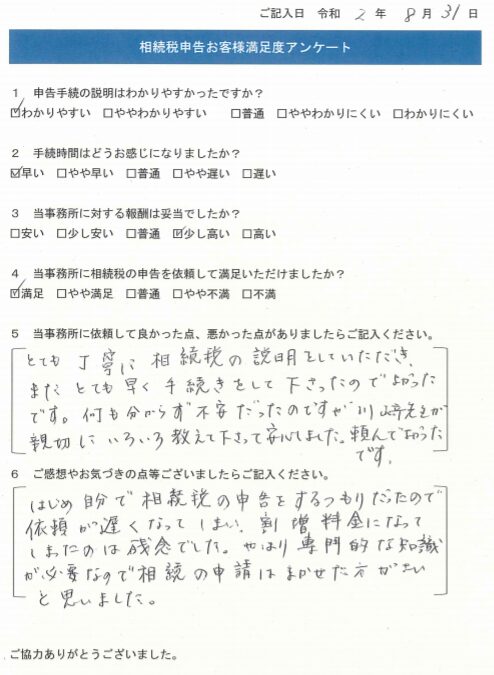 ご記入日 令和 2 年 8 月 31 日
相続税申告お客様満足度アンケート
1 申告手続の説明はわかりやすかったですか?
☑わかりやすい □ややわかりやすい □普通 □ややわかりにくい □わかりにくい
2 手続時間はどうお感じになりましたか?
☑早い □やや早い □普通 □やや遅い □遅い
3 当事務所に対する報酬は妥当でしたか?
□安い □少し安い □普通 ☑少し高い □高い
4 当事務所に相続税の申告を依頼して満足いただけましたか?
☑満足 □やや満足 □普通 □やや不満 □不満
5 当事務所に依頼して良かった点、悪かった点がありましたらご記入ください。
とても丁寧に相続税の説明をしていただき、
またとても早く手続きをして下さったのでよかった
です。何も分からず不安だったのですが川崎先生が
親切にいろいろ教えて下さって安心しました。頼んでよかった
です。
6 ご感想やお気づきの点等ございましたらご記入ください。
はじめ自分で相続税の申告をするつもりだったので
依頼が遅くなってしまい、割増料金になって
しまったのは残念でした。やはり専門的な知識
が必要なので相続の申請はまかせた方がいい
と思いました。
ご協力ありがとうございました。